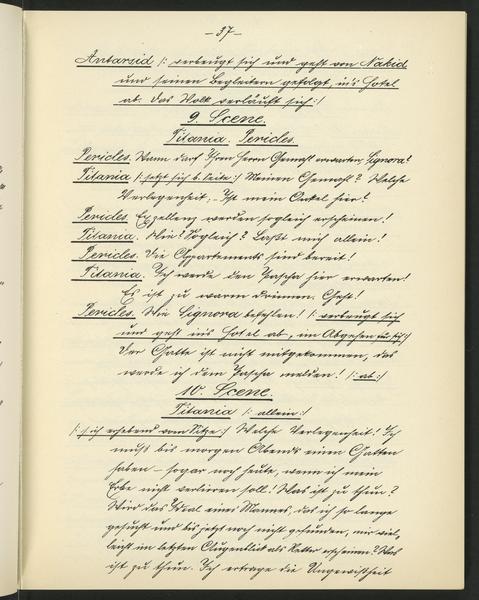 -37-
Antarsid /: verbeugt sich und geht von Nakid
und seinen Begleitern gefolgt, in's Hotel
ab. Das Volk verläuft sich :/
9. Scene.
Titania. Pericles.
Pericles. Wann darf Ihren Herrn Gemahl erwarten, Signora?
Titania /: setzt sich b. leite :/ Meinen Gemahl? Welche
Verlegenheit. Ist mein Onkel hier?
Pericles. Exzellenz werden sogleich erscheinen!
Titania. Wie? Sogleich? Laßt mich allein!
Pericles. Die Appartements sind bereit!
Titania. Ich werde den Pascha hier erwarten!
Es ist zu warm drinnen. Geht!
Pericles. Wie Signora befehlen! /: verbeugt sich
und geht in's Hotel ab, im Abgehen für sich :/
Der Gatte ist nicht mitgekommen, das
werde ich dem Pascha melden! /: ab :/
10. Scene.
Titania /: allein :/
/: sich erhebend vom Sitze :/ Welche Verlegenheit! Ich
muß bis morgen Abends einen Gatten
haben – sogar noch heute, wenn ich mein
Erbe nicht verlieren soll! Was ist zu thun?
Wird das Ideal eines Mannes, das ich so lange
gesucht und bis jetzt noch nicht gefunden, mir viel-
leicht im letzten Augenblick als Retter erscheinen? Was
ist zu thun. Ich ertrage die Ungewißheit